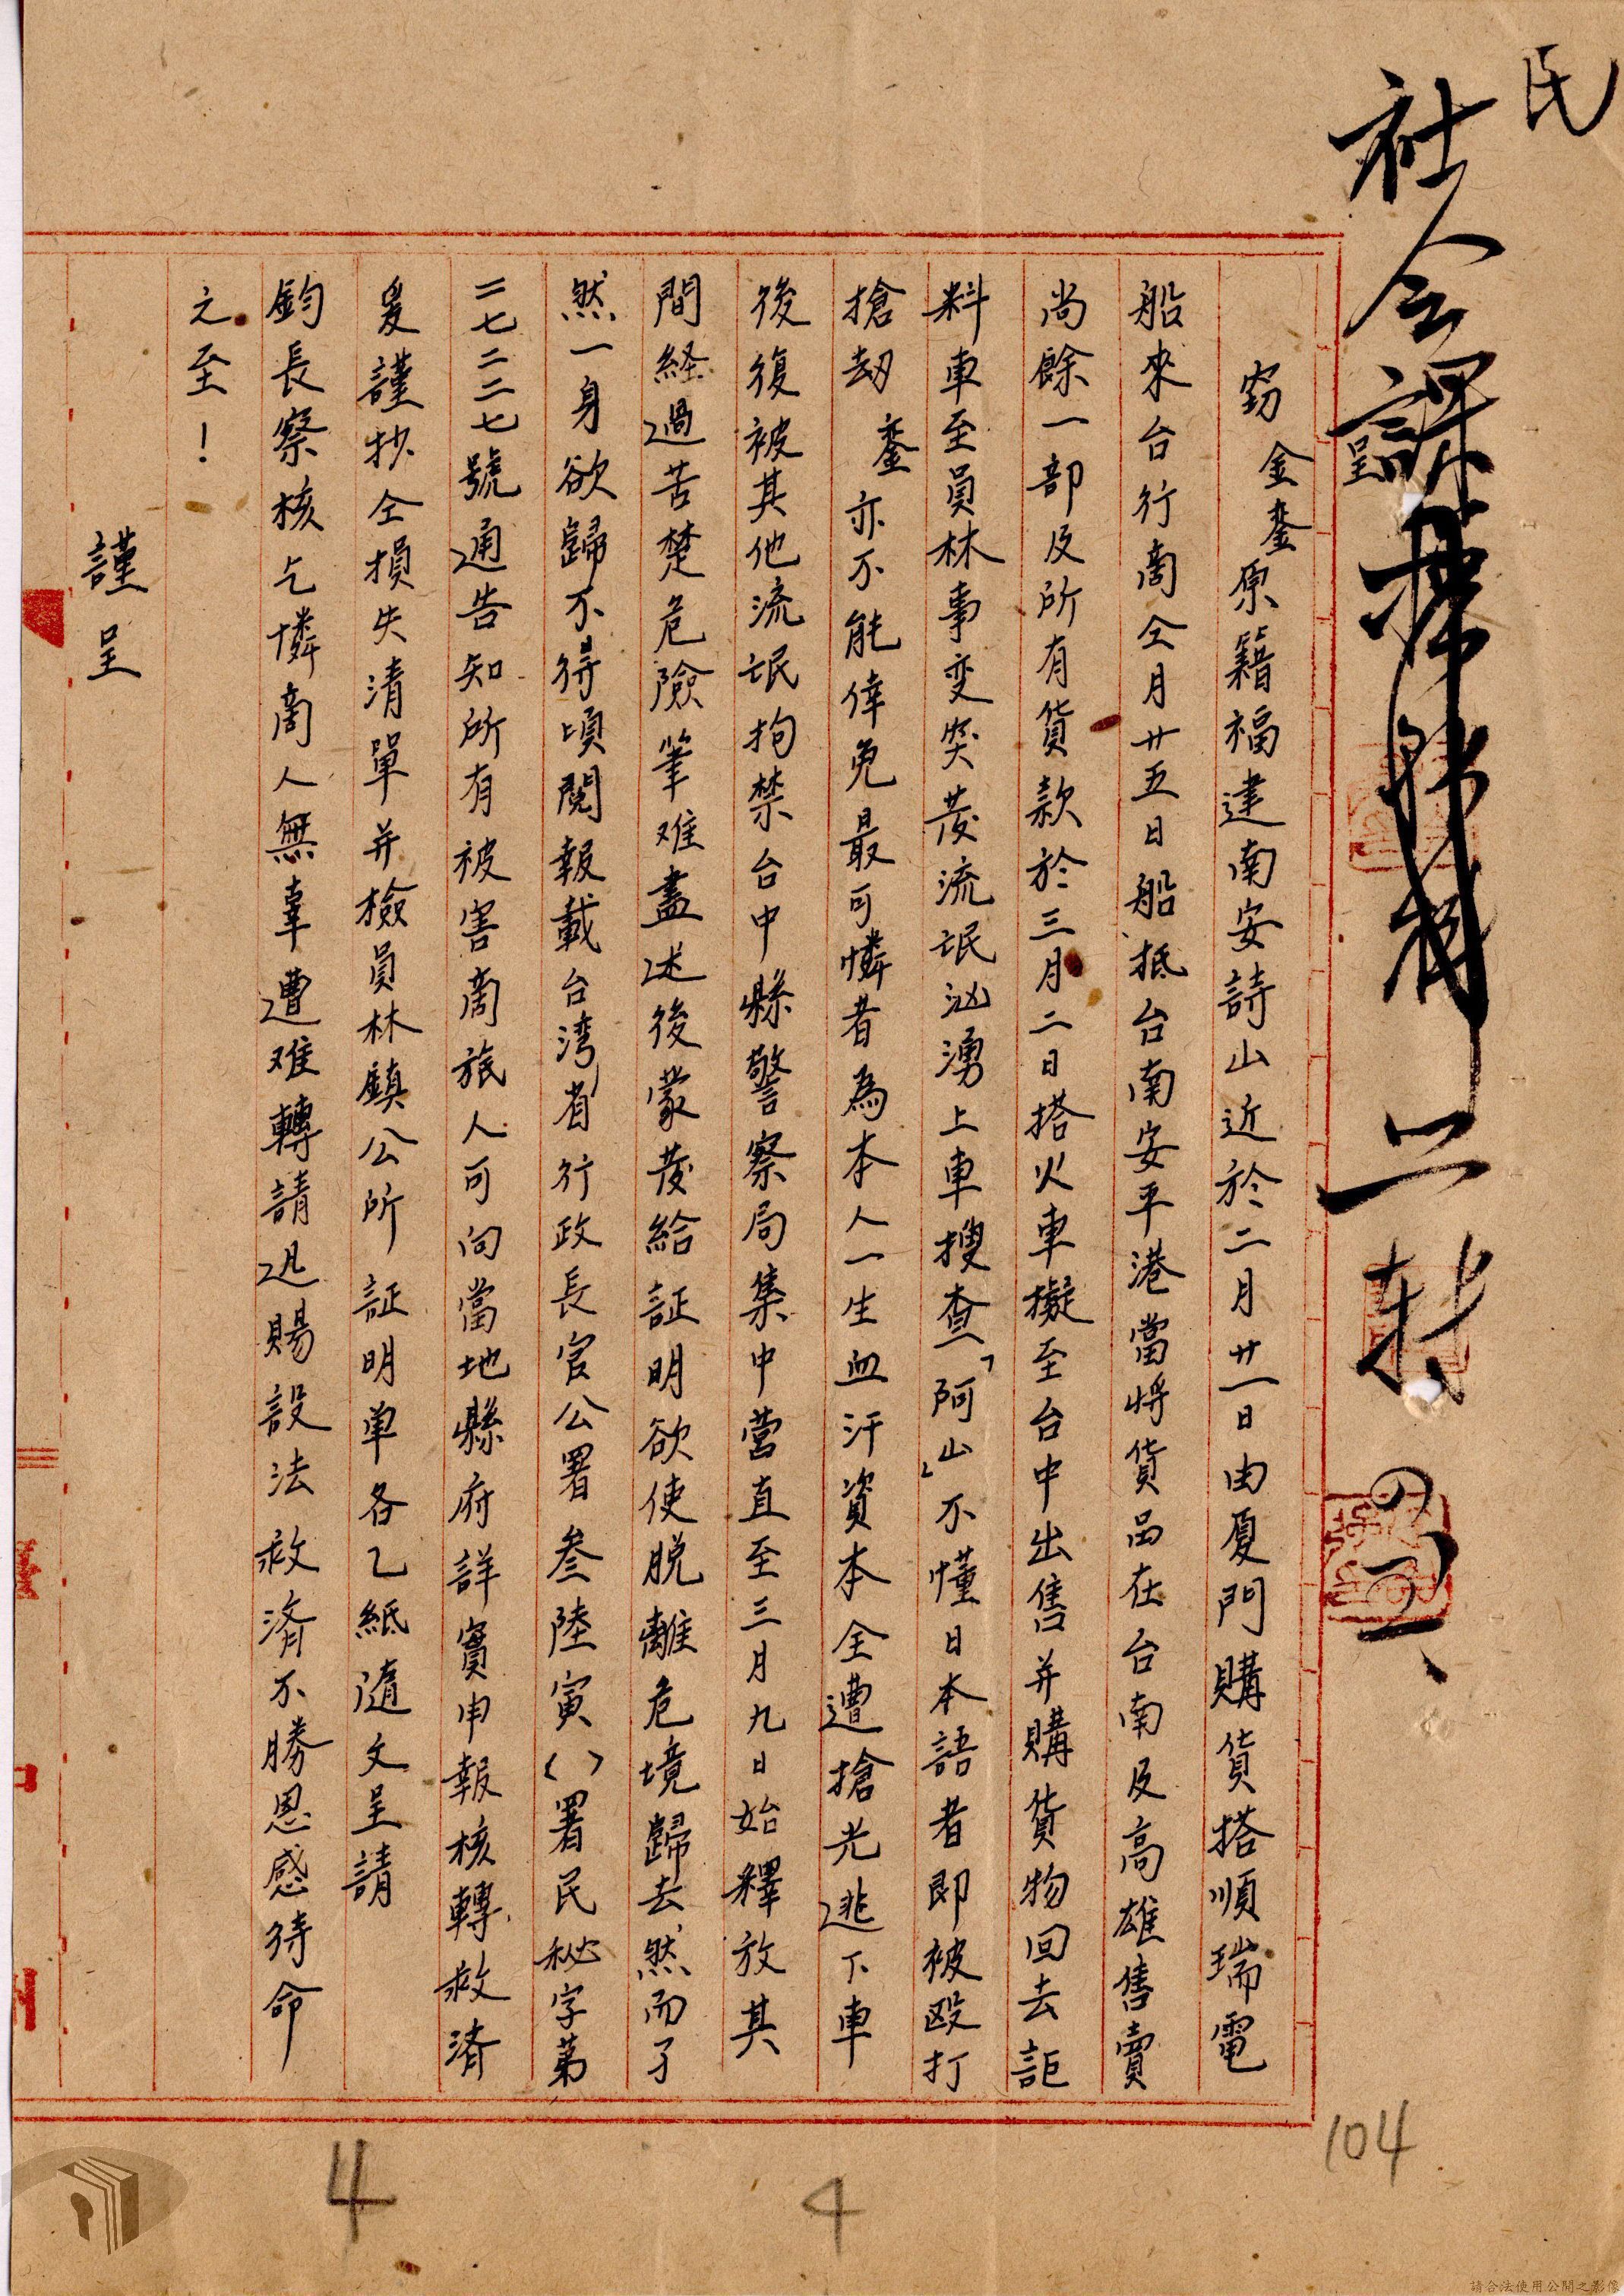 民
社会課
呈
竊金鎏原籍福建南安詩山近於二月廿一日由厦門購貨搭順瑞電
船來台行商仝月廿五日船抵台南安平港當將貨品在台南及高雄售賣
尚餘一部及所有貨款於三月二日搭火車擬至台中出售并購貨物回去詎
料車至員林事变突发流氓汹湧上車搜查「阿山」不懂日本語者即被毆打
搶劫鎏亦不能倖免最可憐者為本人一生血汗資本全遭搶光逃下車
後復被其他流氓拘禁台中縣警察局集中营直至三月九日始釋放其
間経過苦楚危險筆难盡述後蒙发給証明欲使脱離危境歸去然而孑
然一身欲歸不得頃閱報載台湾省行政長官公署叁陸寅（）署民秘字第
二七二二七號通告知所有被害商旅人可向當地縣府詳實申報核轉救济
爰謹抄仝損失清單并檢員林鎮公所証明单各乙紙隨文呈請
鈞長察核乞憐商人無辜遭难轉請迅賜設法救济不勝恩感待命
之至！
謹呈
104
4
4
請合法使用公開之影像